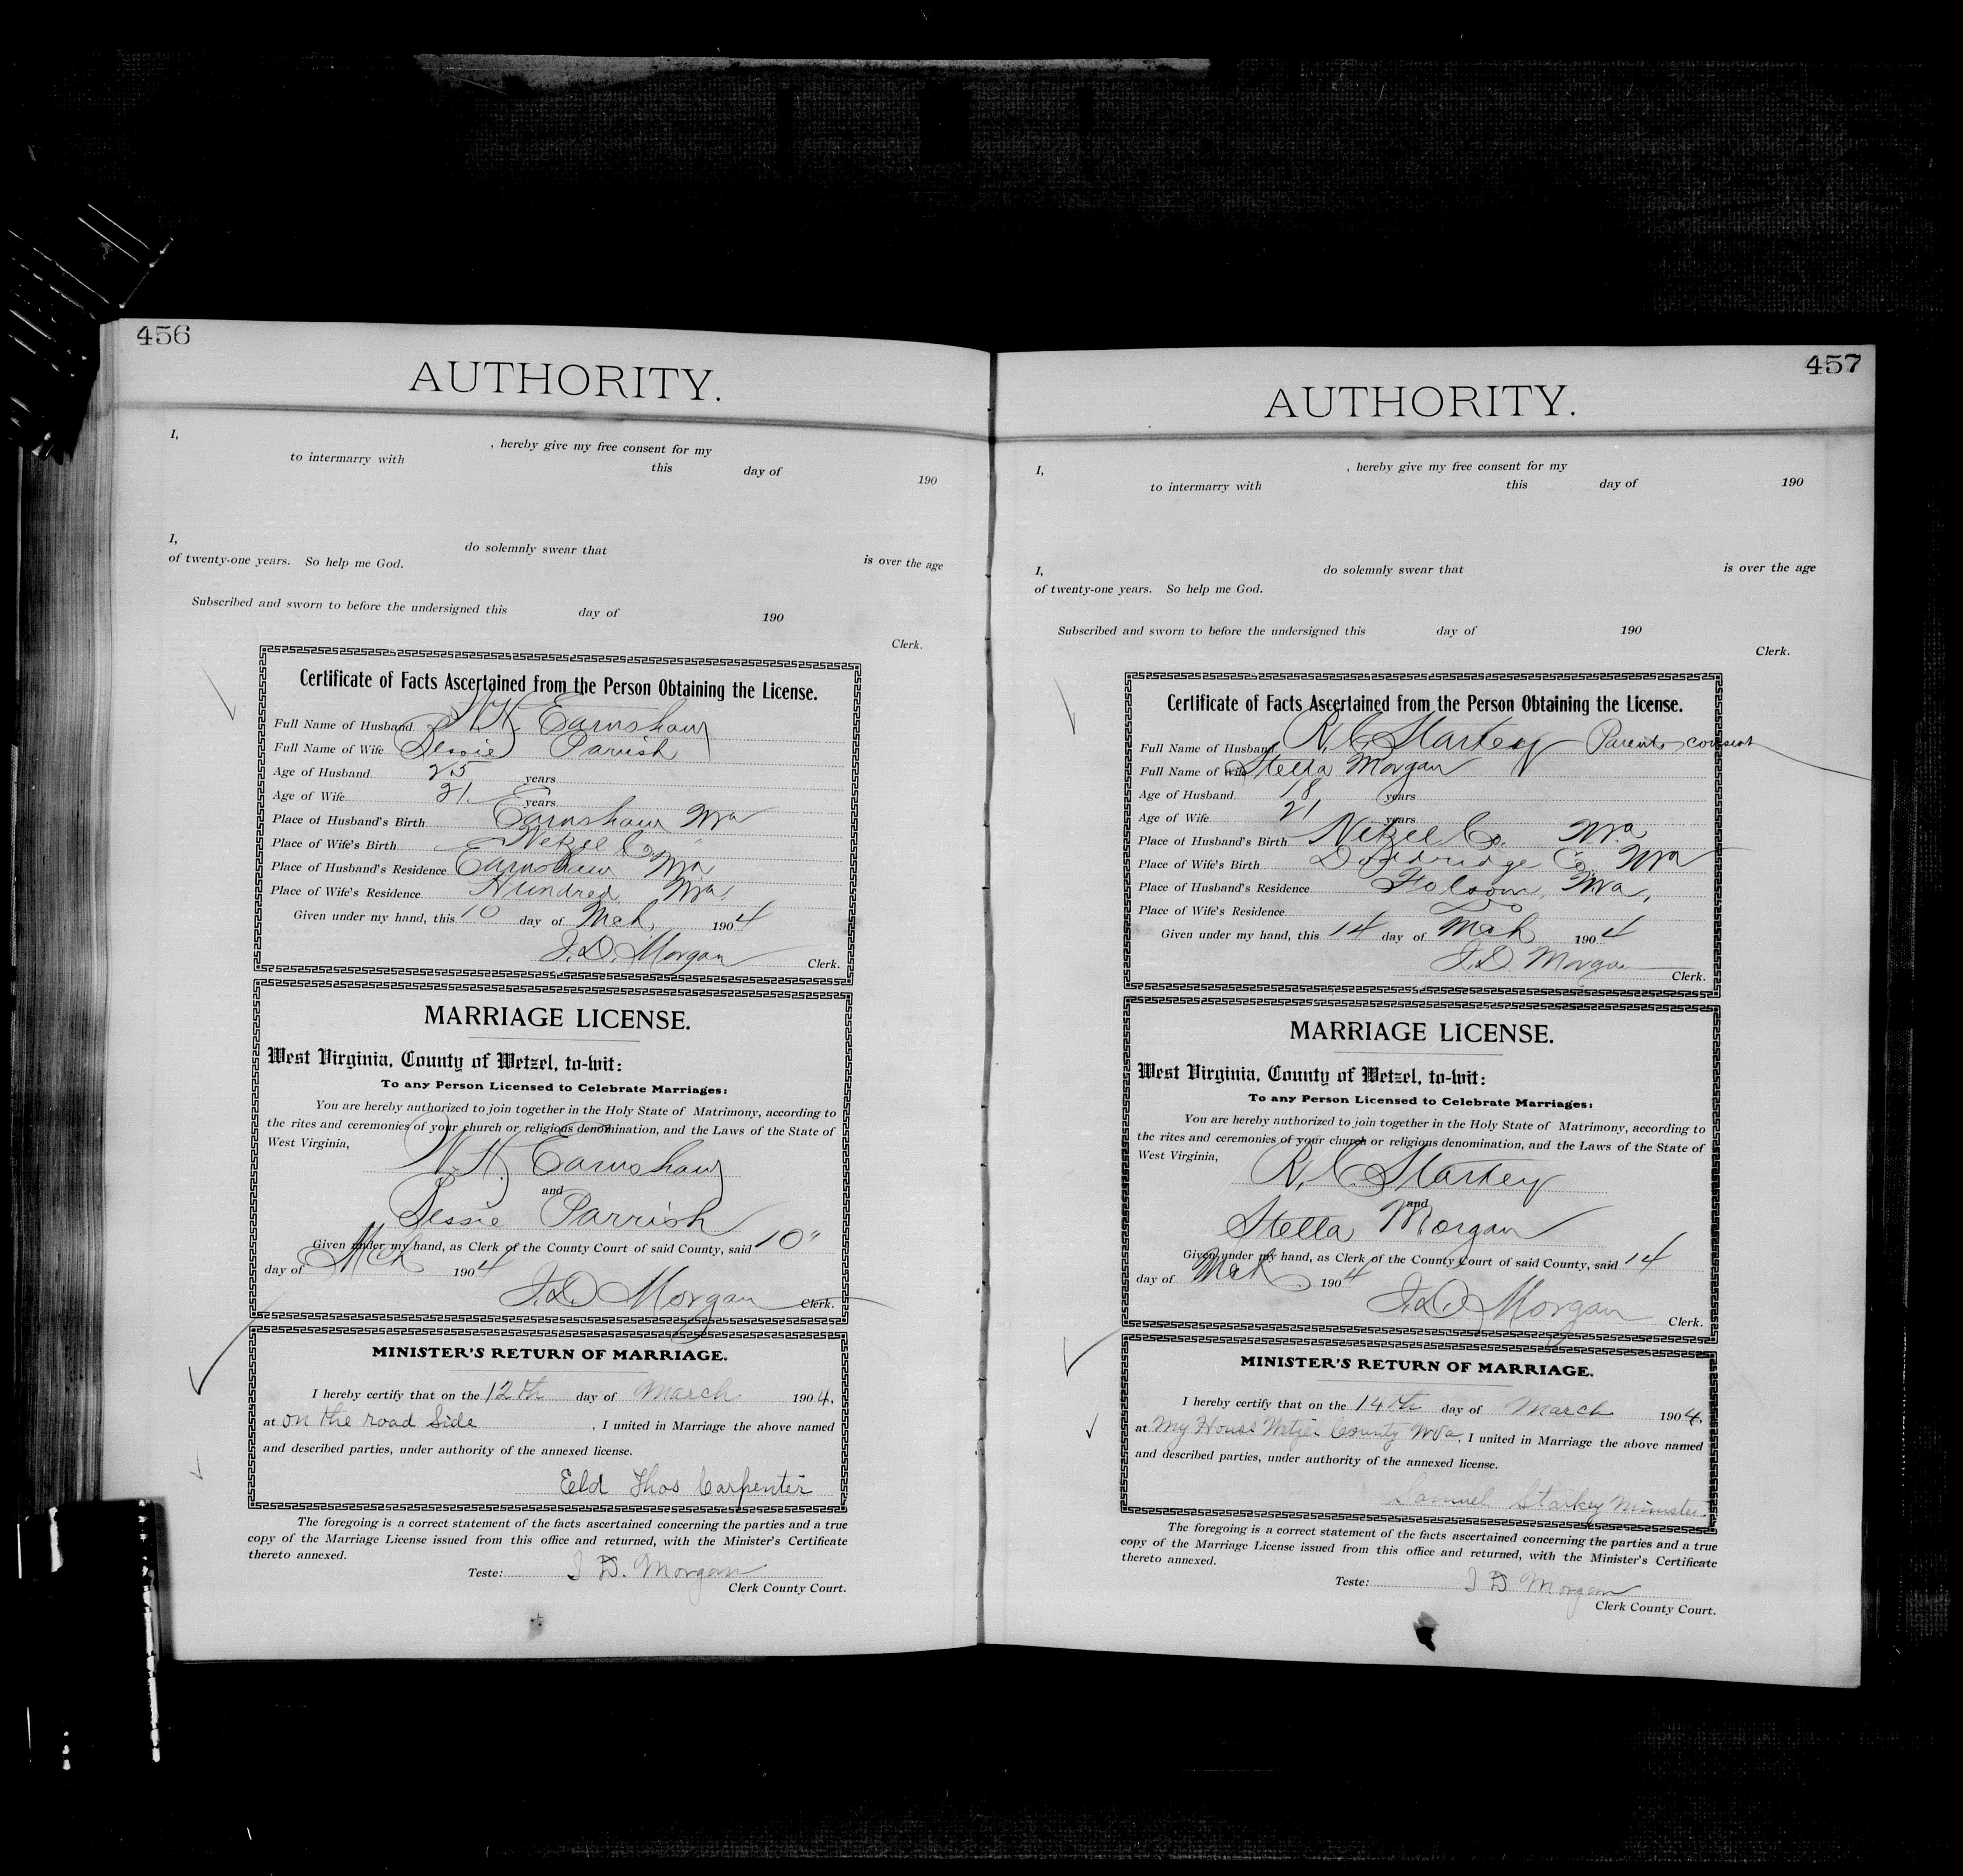 456
AUTHORITY.
I, , hereby give my free consent for my
to intermarry with this day of 190
I, do solemnly swear that is over the age
of twenty-one years. So help me God.
Subscribed and sworn to before the undersigned this day of 190
Clerk.
Certificate of Facts Ascertained from the Person Obtaining the License.
Full Name of Husband W. H. Earnshaw
Full Name of Wife Bessie Parrish
Age of Husband 25 years
Age of Wife 21 years
Place of Husband's Birth Earnshaw Wva
Place of Wife's Birth Wetzel Co "
Place of Husband's Residence Earnshaw Wva
Place of Wife's Residence Hundred Wva.
Given under my hand, this 10 day of Mch, 1904
I. D. Morgan Clerk.
MARRIAGE LICENSE.
West Virginia, County of Wetzel, to-wit:
To any Person Licensed to Celebrate Marriages:
You are hereby authorized to join together in the Holy State of Matrimony, according to
the rites and ceremonies of your church or religious denomination, and the Laws of the State of
West Virginia,
W. H. Earnshaw
and
Bessie Parrish
Given under my hand, as Clerk of the County Court of said County, said 10"
day of Mch 1904
I. D. Morgan Clerk.
MINISTER'S RETURN OF MARRIAGE.
I hereby certify that on the 12th day of March 1904,
at on the road Side , I united in Marriage the above named
and described parties, under authority of the annexed license.
Eld Thos Carpenter
The foregoing is a correct statement of the facts ascertained concerning the parties and a true
copy of the Marriage License issued from this office and returned, with the Minister's Certificate
thereto annexed.
Teste: I D. Morgan
Clerk County Court.
457
AUTHORITY.
I, , hereby give my free consent for my
to intermarry with this day of 190
I, do solemnly swear that is over the age
of twenty-one years. So help me God.
Subscribed and sworn to before the undersigned this day of 190
Clerk.
Certificate of Facts Ascertained from the Person Obtaining the License.
Full Name of Husband R. C. Starkey Parents consent
Full Name of Wife Stella Morgan
Age of Husband 18 years
Age of Wife 21 years
Place of Husband's Birth Wetzel Co. Wva
Place of Wife's Birth Doddridge Co, Wva
Place of Husband's Residence Folsom, Wva,
Place of Wife's Residence Do
Given under my hand, this 14 day of Mch 1904
I. D. Morgan Clerk.
MARRIAGE LICENSE.
West Virginia, County of Wetzel, to-wit:
To any Person Licensed to Celebrate Marriages:
You are hereby authorized to join together in the Holy State of Matrimony, according to
the rites and ceremonies of your church or religious denomination, and the Laws of the State of
West Virginia,
R. C. Starkey
and
Stella Morgan
Given under my hand, as Clerk of the County Court of said County, said 14
day of Mch 1904
I. D. Morgan
Clerk.
MINISTER'S RETURN OF MARRIAGE.
I hereby certify that on the 14th day of March 1904,
at My House Wetzel County Wva, I united in Marriage the above named
and described parties, under authority of the annexed license.
Samuel Starkey Minister
The foregoing is a correct statement of the facts ascertained concerning the parties and a true
copy of the Marriage License issued from this office and returned, with the Minister's Certificate
thereto annexed.
Teste: I D Morgan
Clerk County Court.